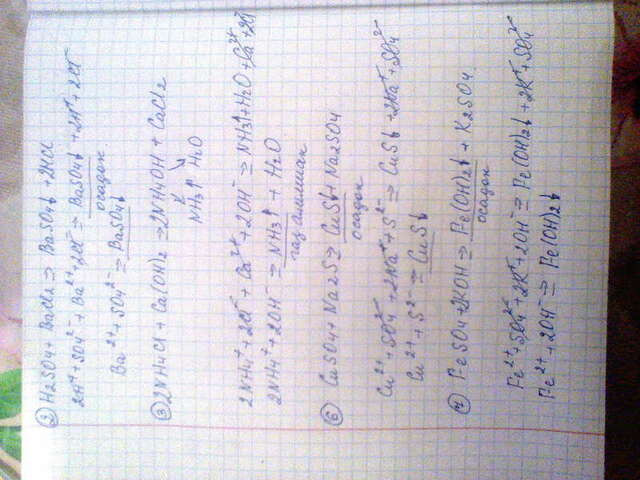 ② H2SO4 + BaCl2 => BaSO4↓ + 2HCl
2H⁺ + SO4²⁻ + Ba²⁺ + 2Cl⁻ => BaSO4↓ + 2H⁺ + 2Cl⁻
осадок
Ba²⁺ + SO4²⁻ => BaSO4↓
③ 2NH4Cl + Ca(OH)2 => 2NH4OH + CaCl2
NH3↑ H2O
2NH4⁺ + 2Cl⁻ + Ca²⁺ + 2OH⁻ => NH3↑ + H2O + Ca²⁺ + 2Cl⁻
2NH4⁺ + 2OH⁻ => NH3↑ + H2O
газ аммиак
⑥ CuSO4 + Na2S => CuS↓ + Na2SO4
осадок
Cu²⁺ + SO4²⁻ + 2Na⁺ + S²⁻ => CuS↓ + 2Na⁺ + SO4²⁻
Cu²⁺ + S²⁻ => CuS↓
⑦ FeSO4 + 2KOH => Fe(OH)2↓ + K2SO4
осадок
Fe²⁺ + SO4²⁻ + 2K⁺ + 2OH⁻ => Fe(OH)2↓ + 2K⁺ + SO4²⁻
Fe²⁺ + 2OH⁻ => Fe(OH)2↓